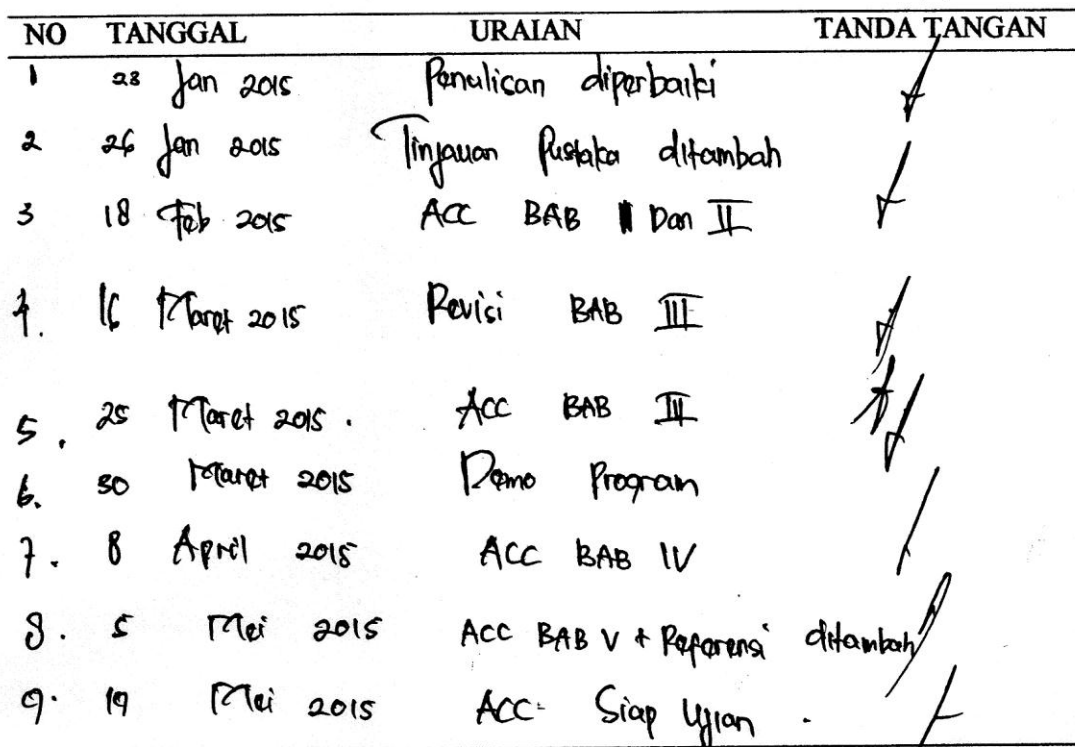 NO TANGGAL URAIAN TANDA TANGAN
1 23 Jan 2015 Penulisan diperbaiki
2 26 Jan 2015 Tinjauan Pustaka ditambah
3 18 Feb 2015 ACC BAB I Dan II
4. 16 Maret 2015 Revisi BAB III
5. 25 Maret 2015. ACC BAB III
6. 30 Maret 2015 Demo Program
7. 8 April 2015 ACC BAB IV
8. 5 Mei 2015 ACC BAB V + Referensi ditambah
9. 19 Mei 2015 ACC Siap Ujian.